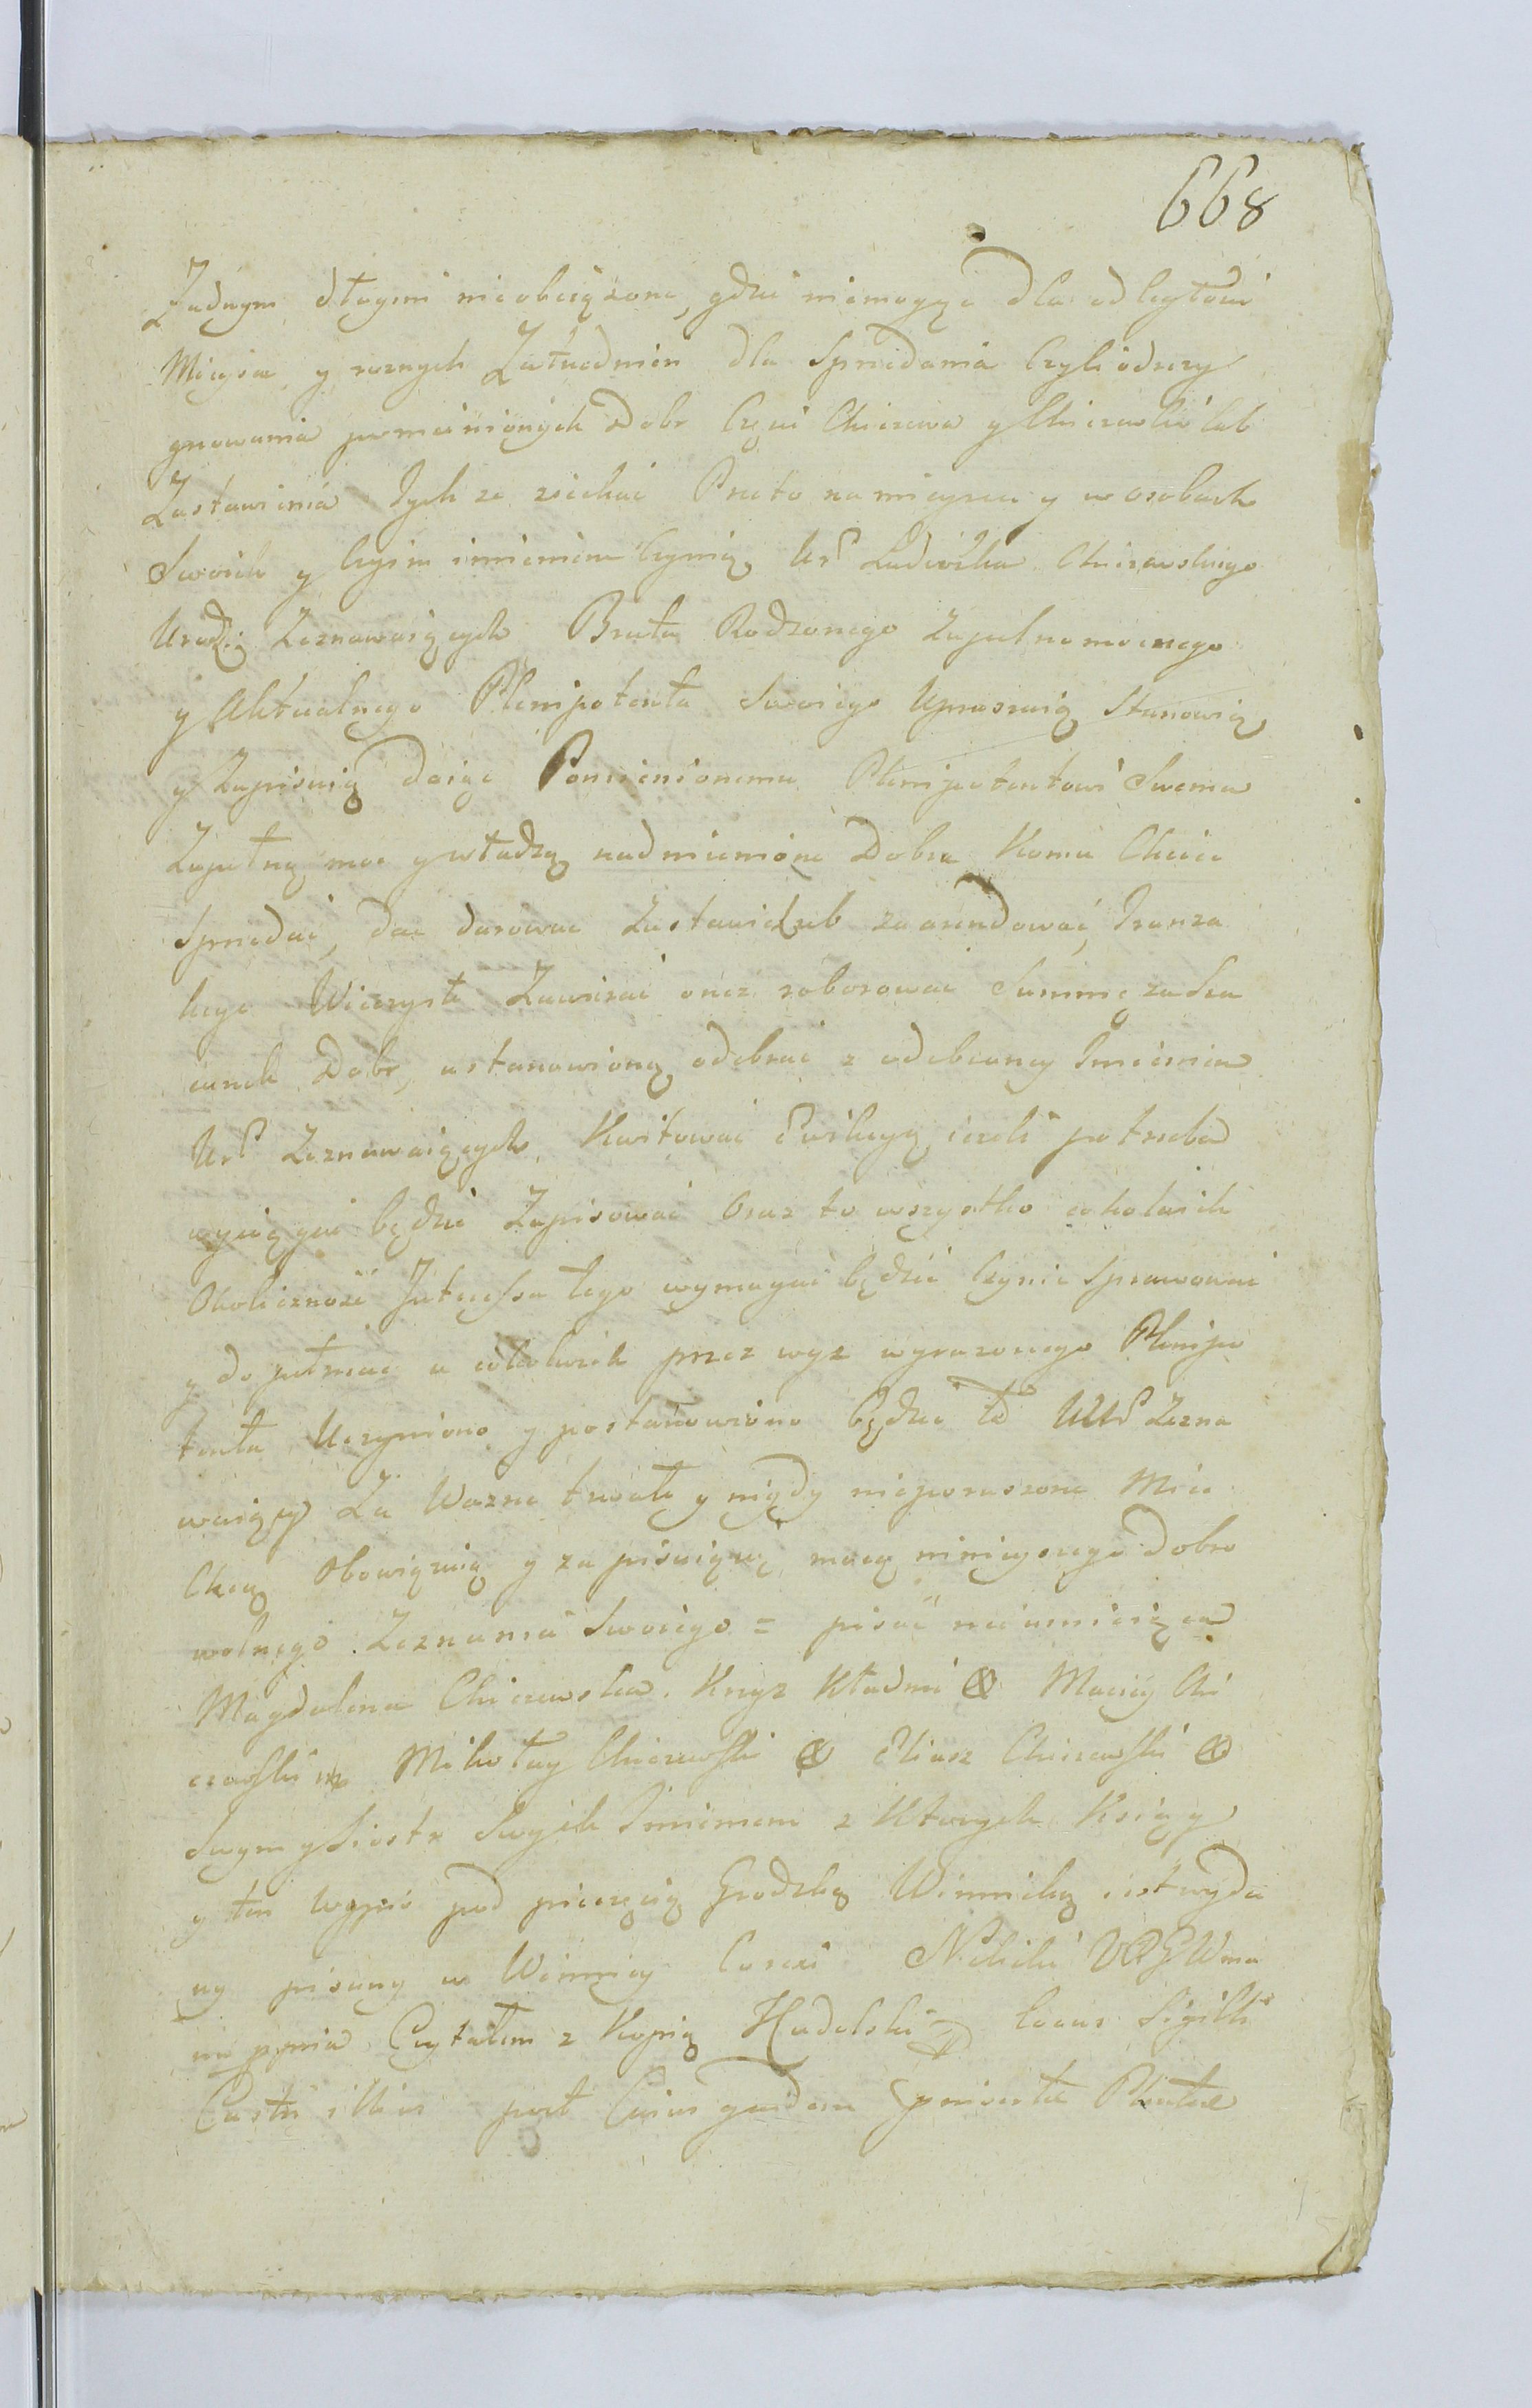 668
Zadnym długiem nieobciązone, gdzie niemogąc dla odległości
Mieysca y roznych Zatrudnien dla Sprzedania Czyli odrezy
gnowania pomienionych Dobr Częsci Chiczewa y Chiczewki lub
Zastawienia Tych ze ziechać Przeto na mieyscu y w osobach
Swoich y czyim imieniem czynią Ur Ludwika Chiczewskiego
Urodz: Zeznawaiących Brata Rodzonego Zupełnomocnego
y Aktualnego Plenipotenta Swoiego Upraszaią Stanowią
y Zapisuią daiąc Pomienionemu Plenipotentowi Swemu
Zupełną moc y władzą nadmienione Dobra Komu Chcieć
Sprzedać, dac darowac Zastawić lub zaarendować, Tranza
kcye Wieczyste Zawierać onez roborować Summę za Sza
cunek Dobr, ustanowioną odebrać z odebraney Imieniem
Ur Zeznawaiących Kwitować Ewikcyą iezeli potrzeba
wyciągać będzie Zapisować Oraz to wszystko cokolwiek
Okoliczność Interessu tego wymagać będzie Czynic Sprawować
y dopełniac a cokolwiek przez wyz wyrazonego Plenipo
tenta Uczyniono y postanowiono będzie to UUr Zezna
waiący Za Wazne trwałe y nigdy nieporuszone Miec
Chcą Obowiązuią y zapisuią się mocą ninieyszego Dobro
wolnego Zeznania Swoiego = pisać nieumieiąca
Magdalena Chiczewska Krzyz Kładnie ⊗ Maciey Chi
czewski Mikołay Chiczewski ⊗ Eliasz Chiczewski ⊗
Swym y Siostr Swych Imieniem z Których Xsiąg y
y ten Wypis pod pieczęcią Grodzką Winnicką iest wyda
ny pisany w Winnicy Correxi Czytałem z Kopią Locus Sigilli
Castri illius post Cuius quidem